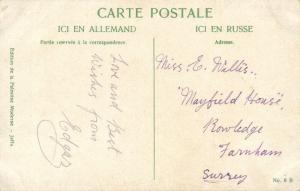 CARTE POSTALE
ICI EN ALLEMAND
ICI EN RUSSE
Partie réservée à la correspondance.
Adresse.
Edition de la Palestine Moderne - Jaffa
Love and best
wishes from
Edgar
Miss E. Willis.,
"Mayfield House",
Rowledge
Farnham
Surrey
No. 6 B